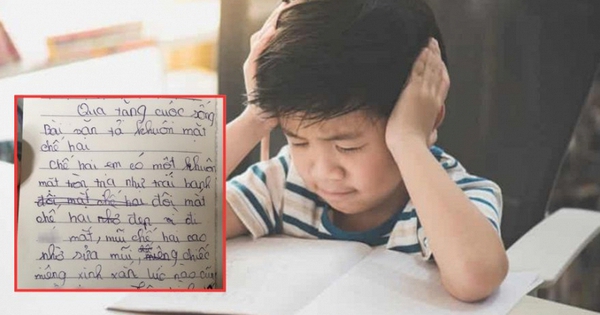 Qua tăng cuóc sống
Bài văn tả khuôn mát
chế hai
Chế hai em có một khuôn
mặt tròn trịa như trái banh
đôi mắt chế hai đôi mắt
chế hai nhờ đẹp vì đi
mắt, mũi chế hai cao
nhờ sửa mũi, miệng chiếc
miệng xinh xắn lúc nào cũng